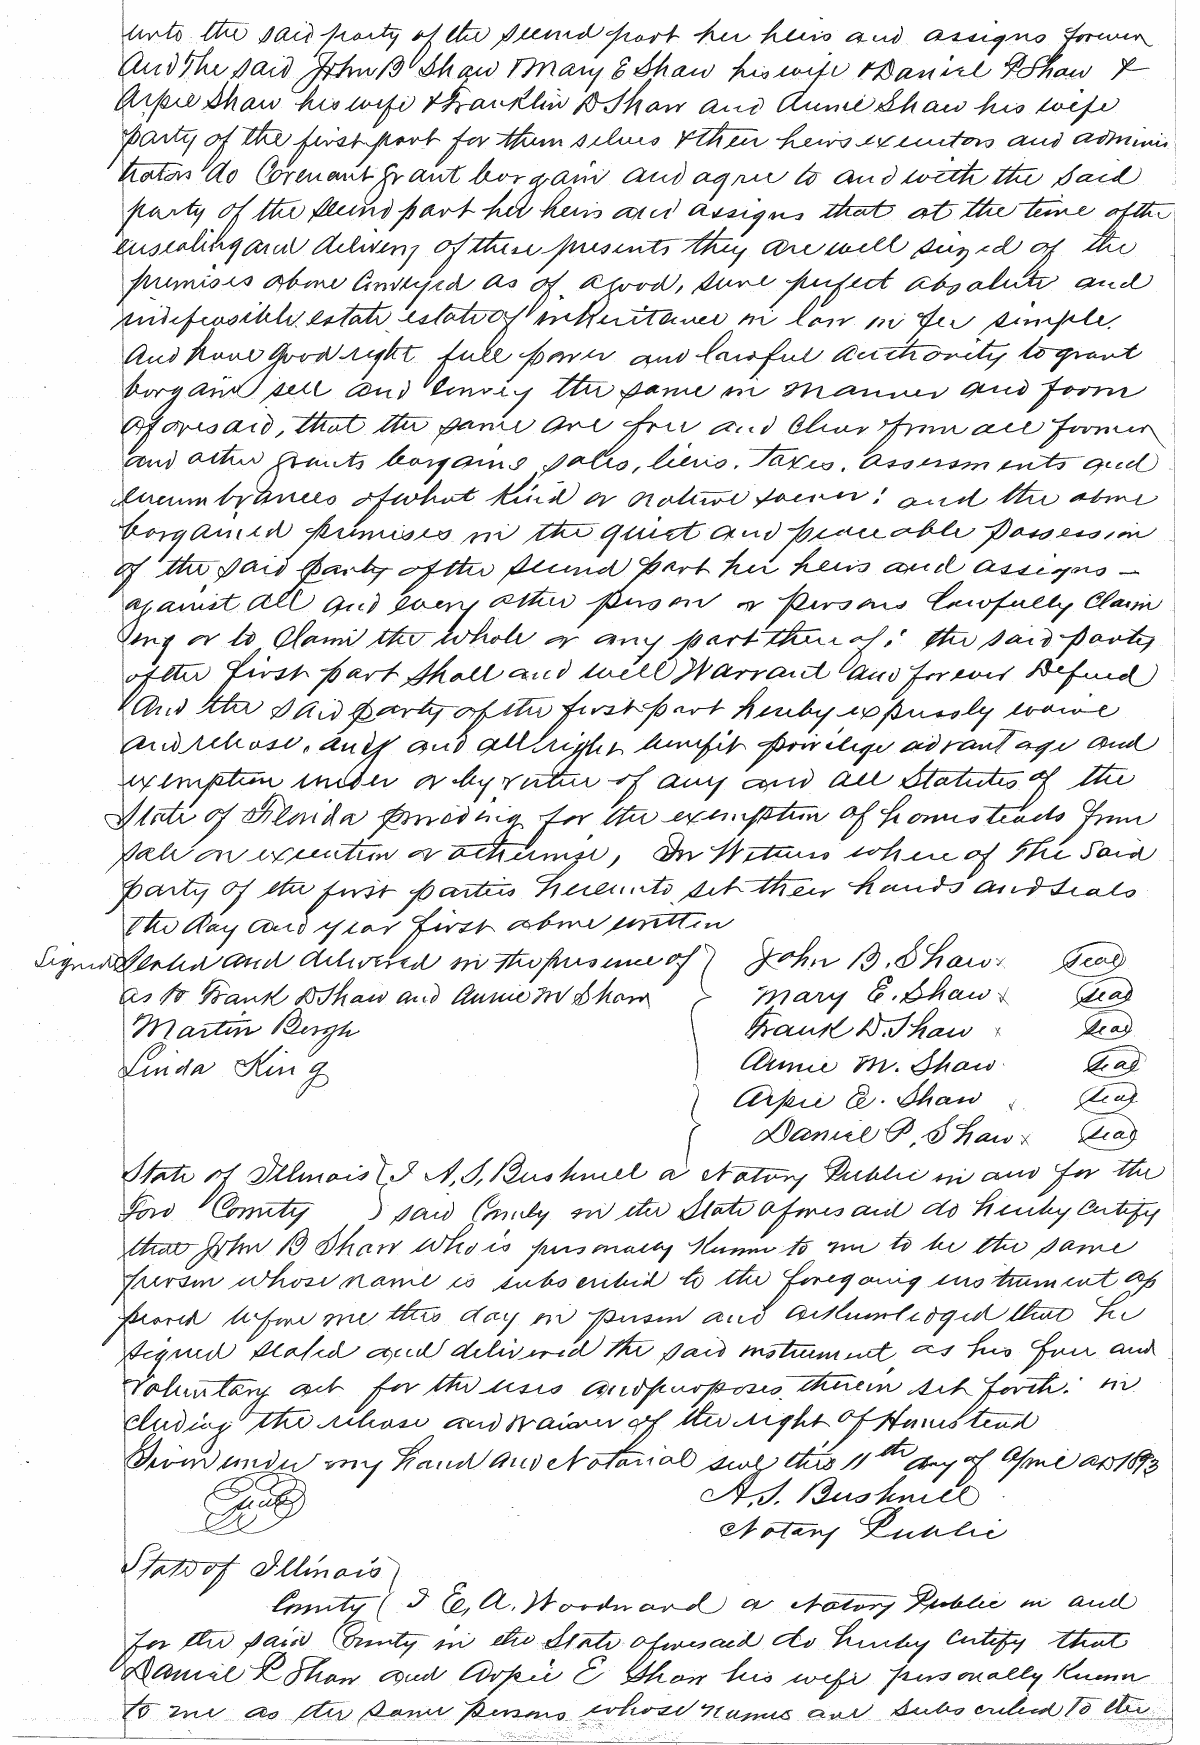 unto the said party of the second part her heirs and assigns forever
And The said John B Shaw & Mary E Shaw his wife & Daniel P Shaw &
Arpie Shaw his wife & Franklin D Shaw and Annie Shaw his wife
party of the first part for them selves & their heirs executors and adminis
trators do Covenant grant bargain and agree to and with the said
party of the second part her heirs and assigns that at the time of the
ensealing and delivery of these presents they are well siezed of the
premises above Conveyed as of a good, sure perfect absolute and
indefeasible estate estate of inheritance in law in fee simple.
And have good right full power and lawful authority to grant
bargain sell and Convey the same in manner and form
aforesaid, that the same are free and Clear from all former
and other grants bargains, sales, liens. Taxes. assessments and
encumbrances of what kind or nature soever: and the above
bargained premises in the quiet and peaceable possession
of the said party of the second part her heirs and assigns —
against all and every other person or persons lawfully Claim
ing or to Claim the whole or any part there of: the said party
of the first part shall and will Warrant and forever Defend
And the said party of the first part hereby expressly waive
and release. any and all right benefit privilege advantage and
exemption under or by virtue of any and all Statutes of the
State of Florida providing for the exemption of homesteads from
sale on execution or otherwise, In Witness where of The said
party of the first parties hereunto set their hands and seals
the day and year first above written
Signed Sealed and delivered in the presence of John B. Shaw Seal
as to Frank D Shaw and Annie M Shaw Mary E. Shaw Seal
Martin Bergh Frank D. Shaw Seal
Linda King Annie M. Shaw Seal
Arpie E. Shaw Seal
Daniel P. Shaw Seal
State of Illinois I A. S. Bushnell a Notary Public in and for the
Ford County said County in the State aforesaid do hereby Certify
that John B Shaw who is personally Known to me to be the same
person whose name is subscribed to the foregoing instrument ap
peared before me this day in person and acknowledged that he
signed sealed and delivered the said instrument as his free and
Voluntary act for the uses and purposes therein set forth: in
cluding the release and waiver of the right of Homestead
Given under my hand and Notarial seal this 11th day of April AD 1893
Seal A. S. Bushnell
Notary Public
State of Illinois
County I E. A. Woodward a Notary Public in and
for the said County in the State aforesaid do hereby Certify that
Daniel P Shaw and Arpie E Shaw his wife personally Known
to me as the same persons whose names are subscribed to the